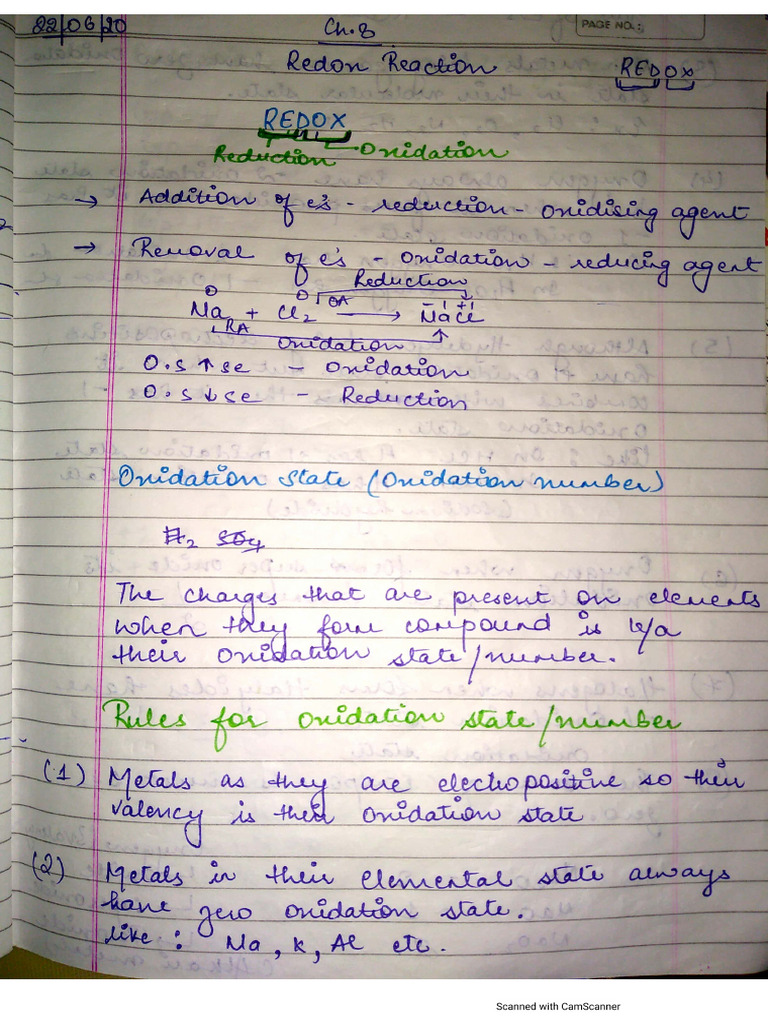 22/06/20
Ch.8
PAGE NO.:
Redox Reaction
REDOX
REDOX
Reduction Oxidation
→ Addition of e's - reduction - oxidising agent
→ Removal of e's - oxidation - reducing agent
Reduction
0 0 OA - 1 +1
Na + Cl2 → NaCl
RA
Oxidation
O.S ↑se - Oxidation
O.S ↓se - Reduction
Oxidation State (Oxidation number)
H2 SO4
The charges that are present on elements
when they form compound is k/a
their oxidation state/number.
Rules for oxidation state/number
(1) Metals as they are electropositive so their
valency is their oxidation state
(2) Metals in their elemental state always
have zero oxidation state.
like : Na, K, Al etc.
Scanned with CamScanner